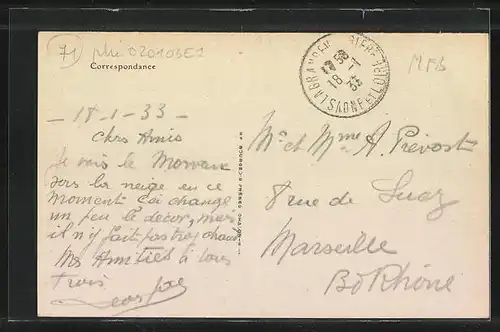 71 phi 020103E2
Correspondance
LA GRANDE VERRIERE
17 50
18 -1
33
SAONE ET LOIRE
MFB
- 18-1-33 -
Chers Amis
Je vois le Morvan
sous la neige en ce
moment. Ça change
un peu le décor, mais
il n'y fait pas trop chaud
Mes Amitiés à tous
trois
Mr et Mme A. Prévost
8 rue de Suez
Marseille
B. Rhône